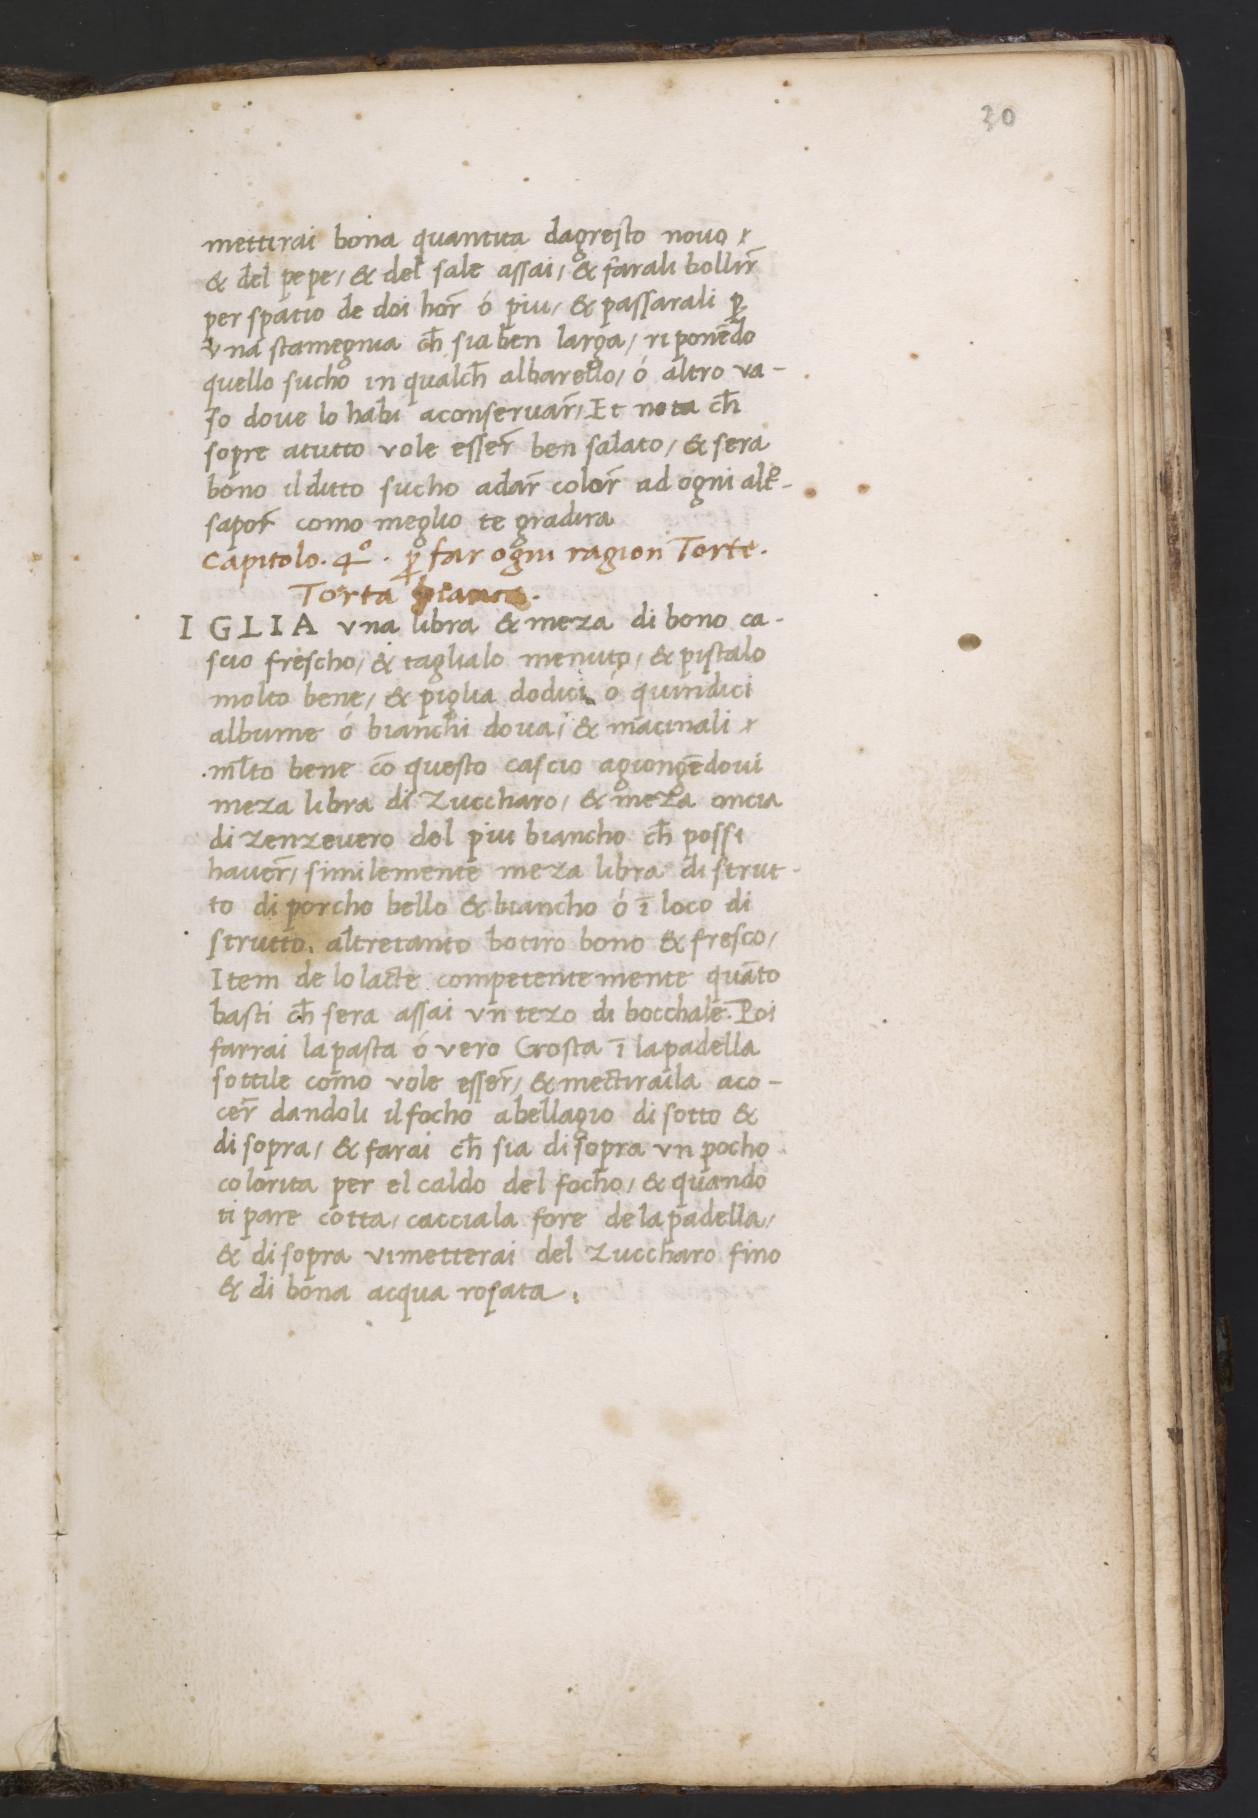 30
mettirai bona quantita dagresto novo r
& del pepe, & del sale assai, & farali bollir̄
per spatio de doi hor̄ ó piu, & passarali p̄
vna stamegnia ch̄ sia ben larga, riponēdo
quello sucho in qualch̄ albarello, ó altro va-
so dove lo habi aconservar̄, Et nota ch̄
sopre atutto vole esser̄ ben salato, & sera
bono il ditto sucho adar̄ color̄ ad ogni altº-
sapor̄ como meglio te gradira
Capitolo. 4º. p̄ far ogni ragion Torte.
Torta bianca.
IGLIA vna libra & meza di bono ca-
scio frescho, & taglialo menuto, & pistalo
molto bene, & piglia dodici ó quindici
albume ó bianchi dova, & macinali r
ml̄to bene cō questo cascio agiongēdovi
meza libra di Zuccharo, & meza oncia
di zenzevero del piu biancho ch̄ possi
haver̄, similemente meza libra di strut-
to di porcho bello & biancho ó ī loco di
strutto, altretanto botiro bono & fresco,
Item de lo lacte competentemente quāto
basti ch̄ sera assai vn tezo di bocchale. Poi
farrai la pasta ó vero Crosta ī la padella
sottile como vole esser̄, & mectiraila aco-
cer̄ dandoli il focho abellagio di sotto &
di sopra, & farai ch̄ sia di sopra vn pocho
colorita per el caldo del focho, & quando
ti pare cotta, cacciala fore de la padella,
& di sopra vi metterai del Zuccharo fino
& di bona acqua rosata.